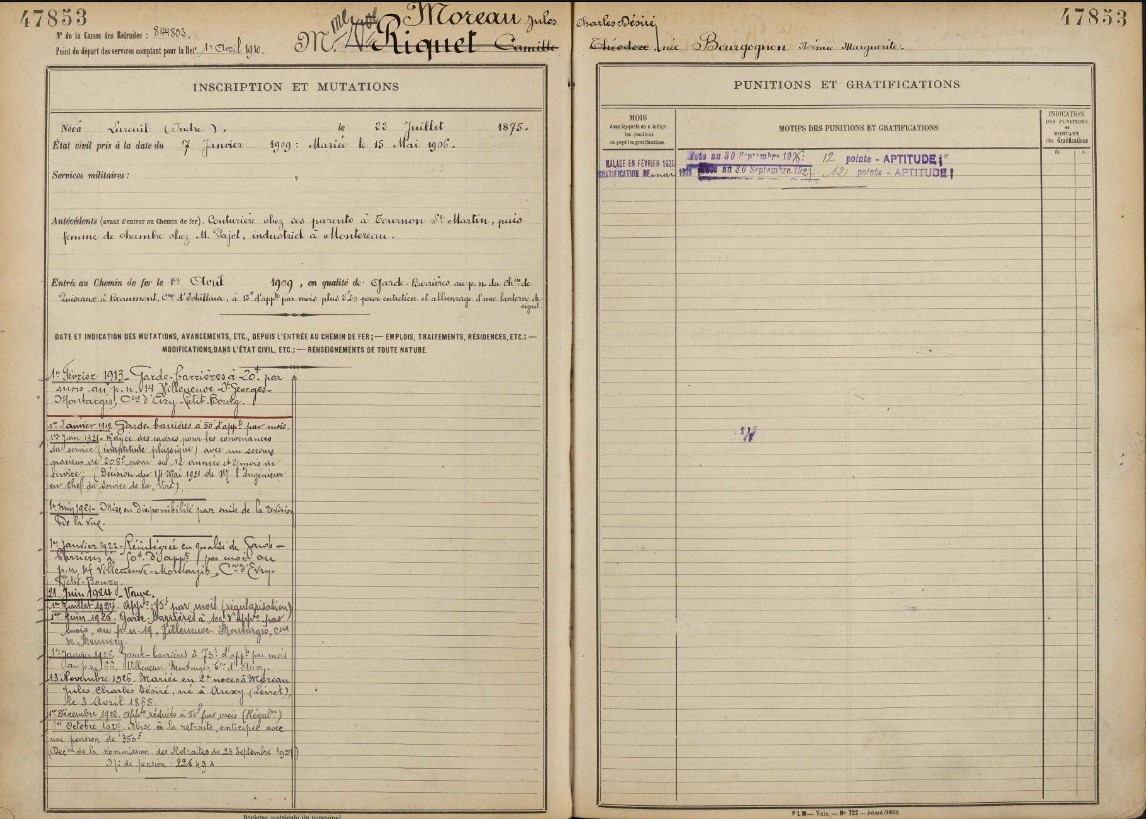 47853
N° de la Caisse des Retraites : 844803.
Point du départ des services comptant pour la Ret^te 1^er Avril 1910.
Moreau Jules Charles Désiré
M^me V^ve Riquet Camille Théodore, née Bourgognon Noémie Marguerite.
47853
INSCRIPTION ET MUTATIONS
Née à Lureuil (Indre). le 22 Juillet 1875.
État civil pris à la date du 7 Janvier 1909 : Mariée le 15 Mai 1906.
Services militaires :
Antécédents (avant d'entrer au Chemin de fer). Couturière chez ses parents à Tournon St Martin, puis
femme de chambre chez M. Pajot, industriel à Montereau.
Entrée au Chemin de fer le 1^er Avril 1909, en qualité de Garde-Barrières au p.n. du Ch^in de
Puiseaux à Beaumont, C^ne d'Echilleuses, à 15^f d'app^ts par mois plus pour entretien et allumage d'une lanterne de
signal.
DATE ET INDICATION DES MUTATIONS, AVANCEMENTS, ETC., DEPUIS L'ENTRÉE AU CHEMIN DE FER; — EMPLOIS, TRAITEMENTS, RÉSIDENCES, ETC.; —
MODIFICATIONS, DANS L'ÉTAT CIVIL, ETC.; — RENSEIGNEMENTS DE TOUTE NATURE.
1^er Février 1913_ Garde-barrières à 20^f par
mois au p.n. 14 Villeneuve-S^t Georges-
Montargis, C^ne d'Evry-Petit-Bourg.
1^er Janvier 1919. Garde-barrières à 50^f d'app^ts par mois.
1^er Juin 1921_ Rayée des cadres pour les convenances
du service (inaptitude physique) avec un secours
de 208^f pour ses 12 années et 2 mois de
service; (Décision du 14 Mai 1921 de M^r l'Ingénieur
en Chef du Service de la Voie)
1^er Juin 1921_ Mise en disponibilité par suite de la révision
de la vue.
1^er Janvier 1922_ Réintégrée en qualité de Garde-
barrières à 50^f d'app^ts par mois au
p.n. 14 Villeneuve-Montargis, C^ne d'Evry-
Petit-Bourg.
21 Juin 1924_ Veuve.
1^er Juillet 1924. App^ts 75^f par mois (régularisation)
1^er Juin 1925. Garde-barrières à 100^f d'app^ts par
mois, au p.n. 19, Villeneuve Montargis, C^ne
de Mennecy.
1^er Janvier 1926. Garde-barrières à 75^f d'app^ts par mois
au p.n. 66, Villeneuve Montargis, C^ne d'Auxy.
13 Novembre 1926. Mariée en 2^es noces à Moreau
Jules Charles Désiré, né à Auxy (Loiret),
le 3 Avril 1865.
1^er Décembre 1926. App^ts réduits à 50^f par mois (Régul^on)
1^er Octobre 1927. Mise à la retraite anticipée avec
une pension de 350^f
(Déc^on de la Commission des Retraites du 23 Septembre 1927)
N° de pension : 22649
Registre matricule du personnel
PUNITIONS ET GRATIFICATIONS
MOIS
dans lesquels on a infligé
les punitions
ou payé les gratifications.
MOTIFS DES PUNITIONS ET GRATIFICATIONS
INDICATION
DES PUNITIONS
et
MONTANT
des Gratifications
fr. c.
MALADE EN FÉVRIER 1926
Note au 30 Septembre 1926: 12 points - APTITUDE:
GRATIFICATION DE mai 1926
Note au 30 Septembre 1927: 12 points - APTITUDE:
PLM — Voie. — N° 722